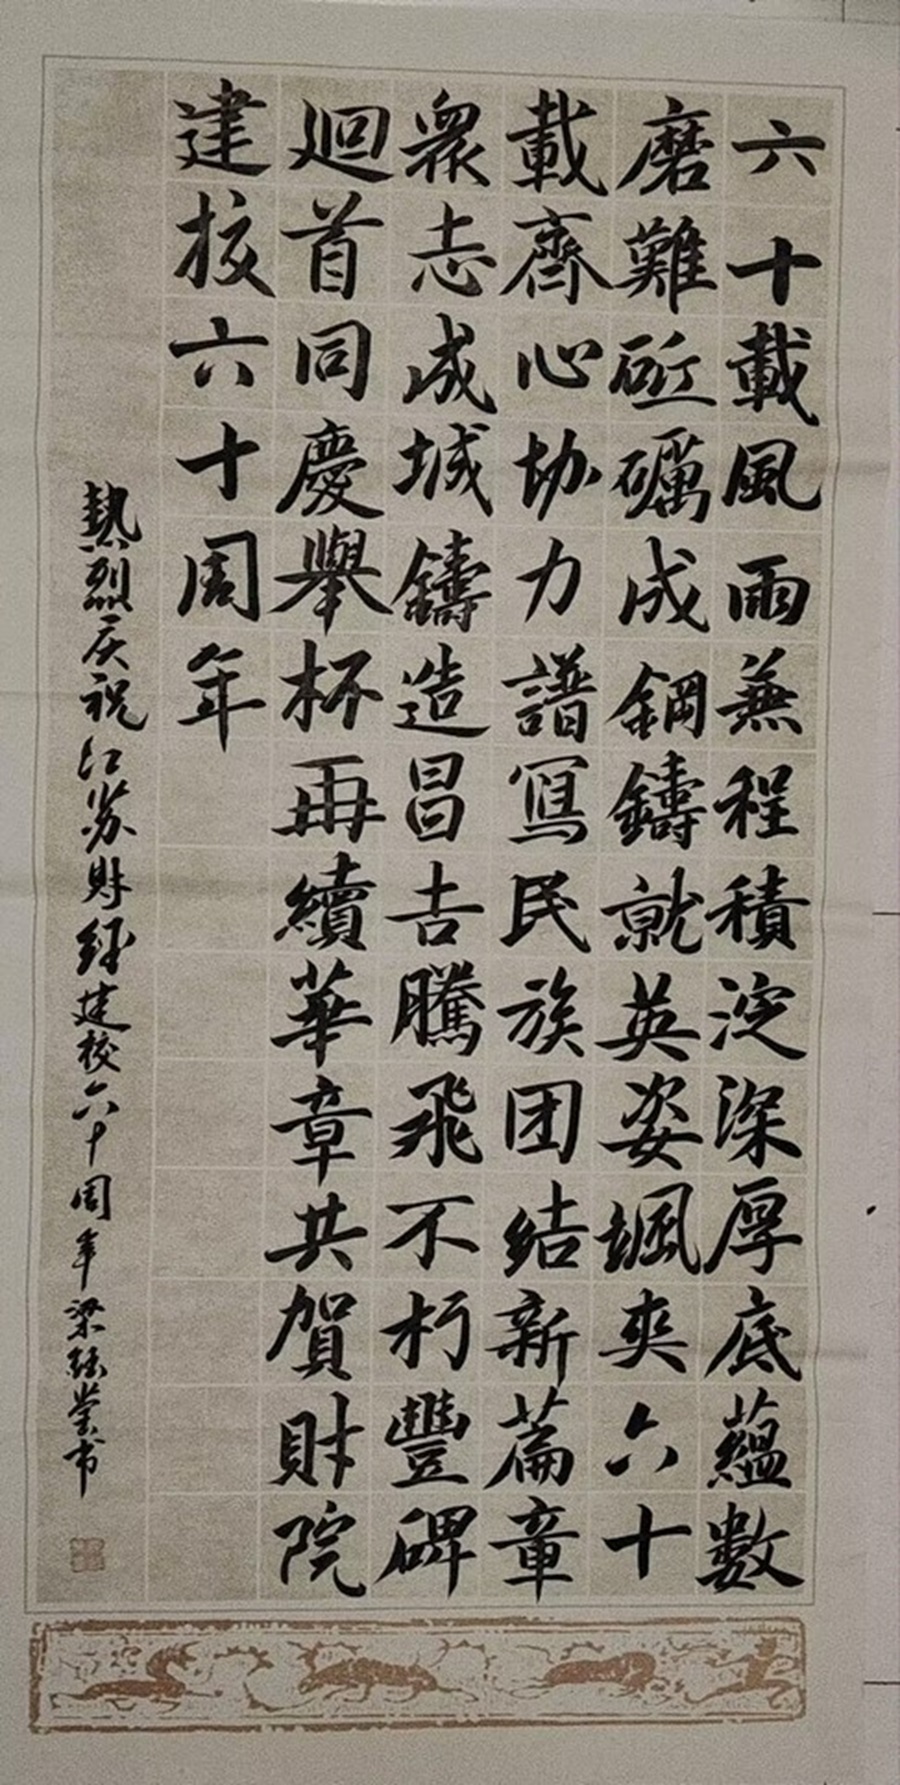 六十載風雨兼程積淀深厚底蘊數
磨難砥礪成鋼鑄就英姿颯爽六十
載齊心协力譜寫民族团結新篇章
衆志成城鑄造昌吉騰飛不朽豐碑
迴首同慶舉杯再續華章共賀財院
建校六十周年
熱烈庆祝江苏財經建校六十周年梁書